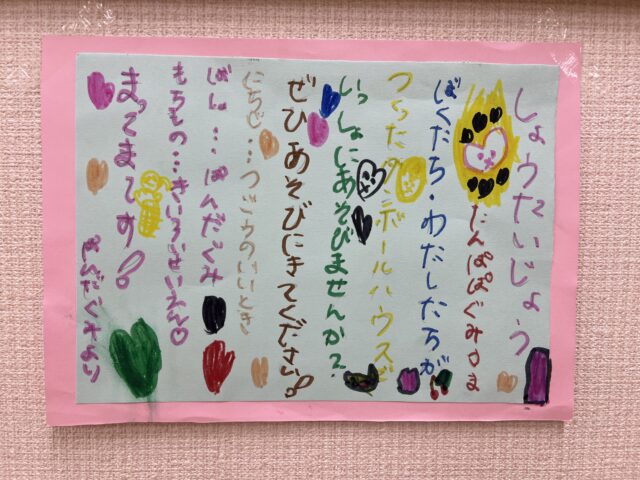 しょうたいじょう
たんぽぽぐみさま
ぼくたち・わたしたちが
つくったダンボールハウスで
いっしょにあそびませんか?
ぜひあそびにきてください!
にちじ…つごうのいいとき
ばしょ…ぱんだぐみ
もちもの…きいろいぼうし♡
まってまーす!
ぱんだぐみより